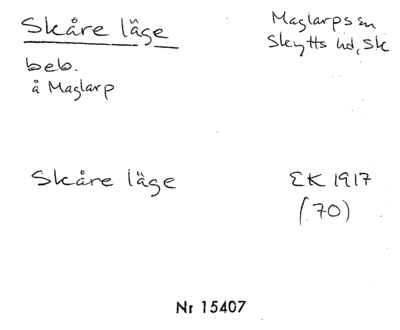 Skåre läge
Maglarps sn
Skytts hd, Sk
beb.
å Maglarp
Skåre läge
EK 1917
(70)
Nr 15407